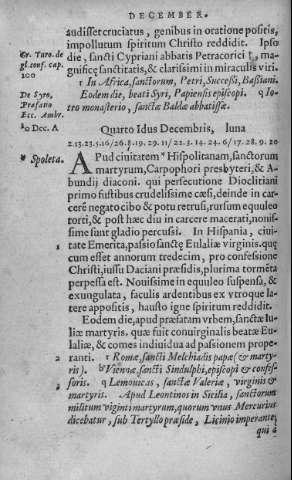 DECEMBER.
audisset cruciatus, genibus in oratione positis,
impollutum spiritum Christo reddidit. Ipso
die, sancti Cypriani abbatis Petracorici ᵗ, ma-
gnificę sanctitatis, & clarissimi in miraculis viri.
ᵗ In Africa, sanctorum, Petri, Successi, Bassiani.
Eodem die, beati Syri, Papiensis episcopi. ᵘ Io-
tro monasterio, sanctæ Baldæ abbatissæ.
Gr. Turo. de
gl. conf. cap.
100
De Syro,
Profano
Ecc. Ambr.
10 Dec. A
Quarto Idus Decembris, luna
2. 13. 23. 5. 16/26. 8. 19. 29. 11/22. 3. 14. 24. 6/17. 28. 9. 20
Spoleta.
APud ciuitatem Hispolitanam, sanctorum
martyrum, Carpophori presbyteri, & A-
bundij diaconi. qui persecutione Dioclitiani
primo fustibus crudelissime cæsi, deinde in car-
cerē negato cibo & potu retrusi, rursum equuleo
torti, & post hæc diu in carcere macerati, nouis-
sime sunt gladio percussi. In Hispania, ciui-
tate Emerita, passio sanctę Eulalię virginis. quę
cum esset annorum tredecim, pro confessione
Christi, iussu Daciani præsidis, plurima tormēta
perpessa est. Nouissime in equuleo suspensa, &
exungulata, faculis ardentibus ex vtroque la-
tere appositis, hausto igne spiritum reddidit.
Eodem die, apud præfatam vrbem, sanctæ Iu-
liæ martyris. quæ fuit conuirginalis beatæ Eu-
laliæ, & comes indiuidua ad passionem prope-
ranti. ᵗ Romæ, sancti Melchiadis papæ (& marty-
ris). ᵇ Viennæ, sancti Sindulphi, episcopi & confes-
soris. ᵗ Lemouicas, sanctæ Valeriæ, virginis &
martyris. Apud Leontinos in Sicilia, sanctorum
militum viginti martyrum, quorum vnus Mercurius
dicebatur, sub Tertyllo præside, Licinio imperante,
qui à